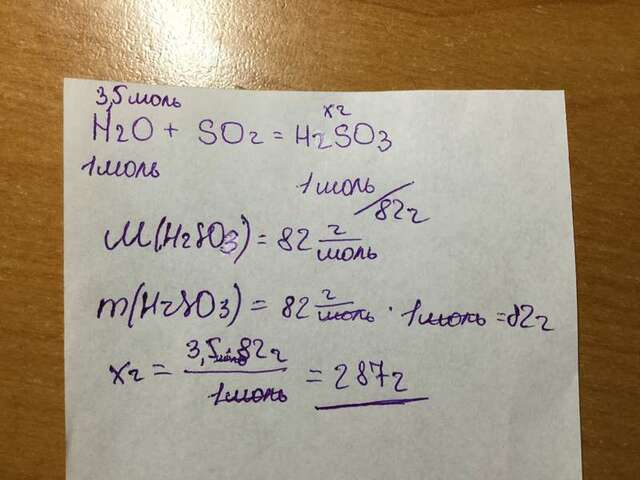 3,5 моль
xг
H2O + SO2 = H2SO3
1 моль 1 моль/82г
M(H2SO3) = 82 г/моль
m(H2SO3) = 82 г/моль · 1 моль = 82г
xг = 3,5 моль · 82г / 1 моль = 287г